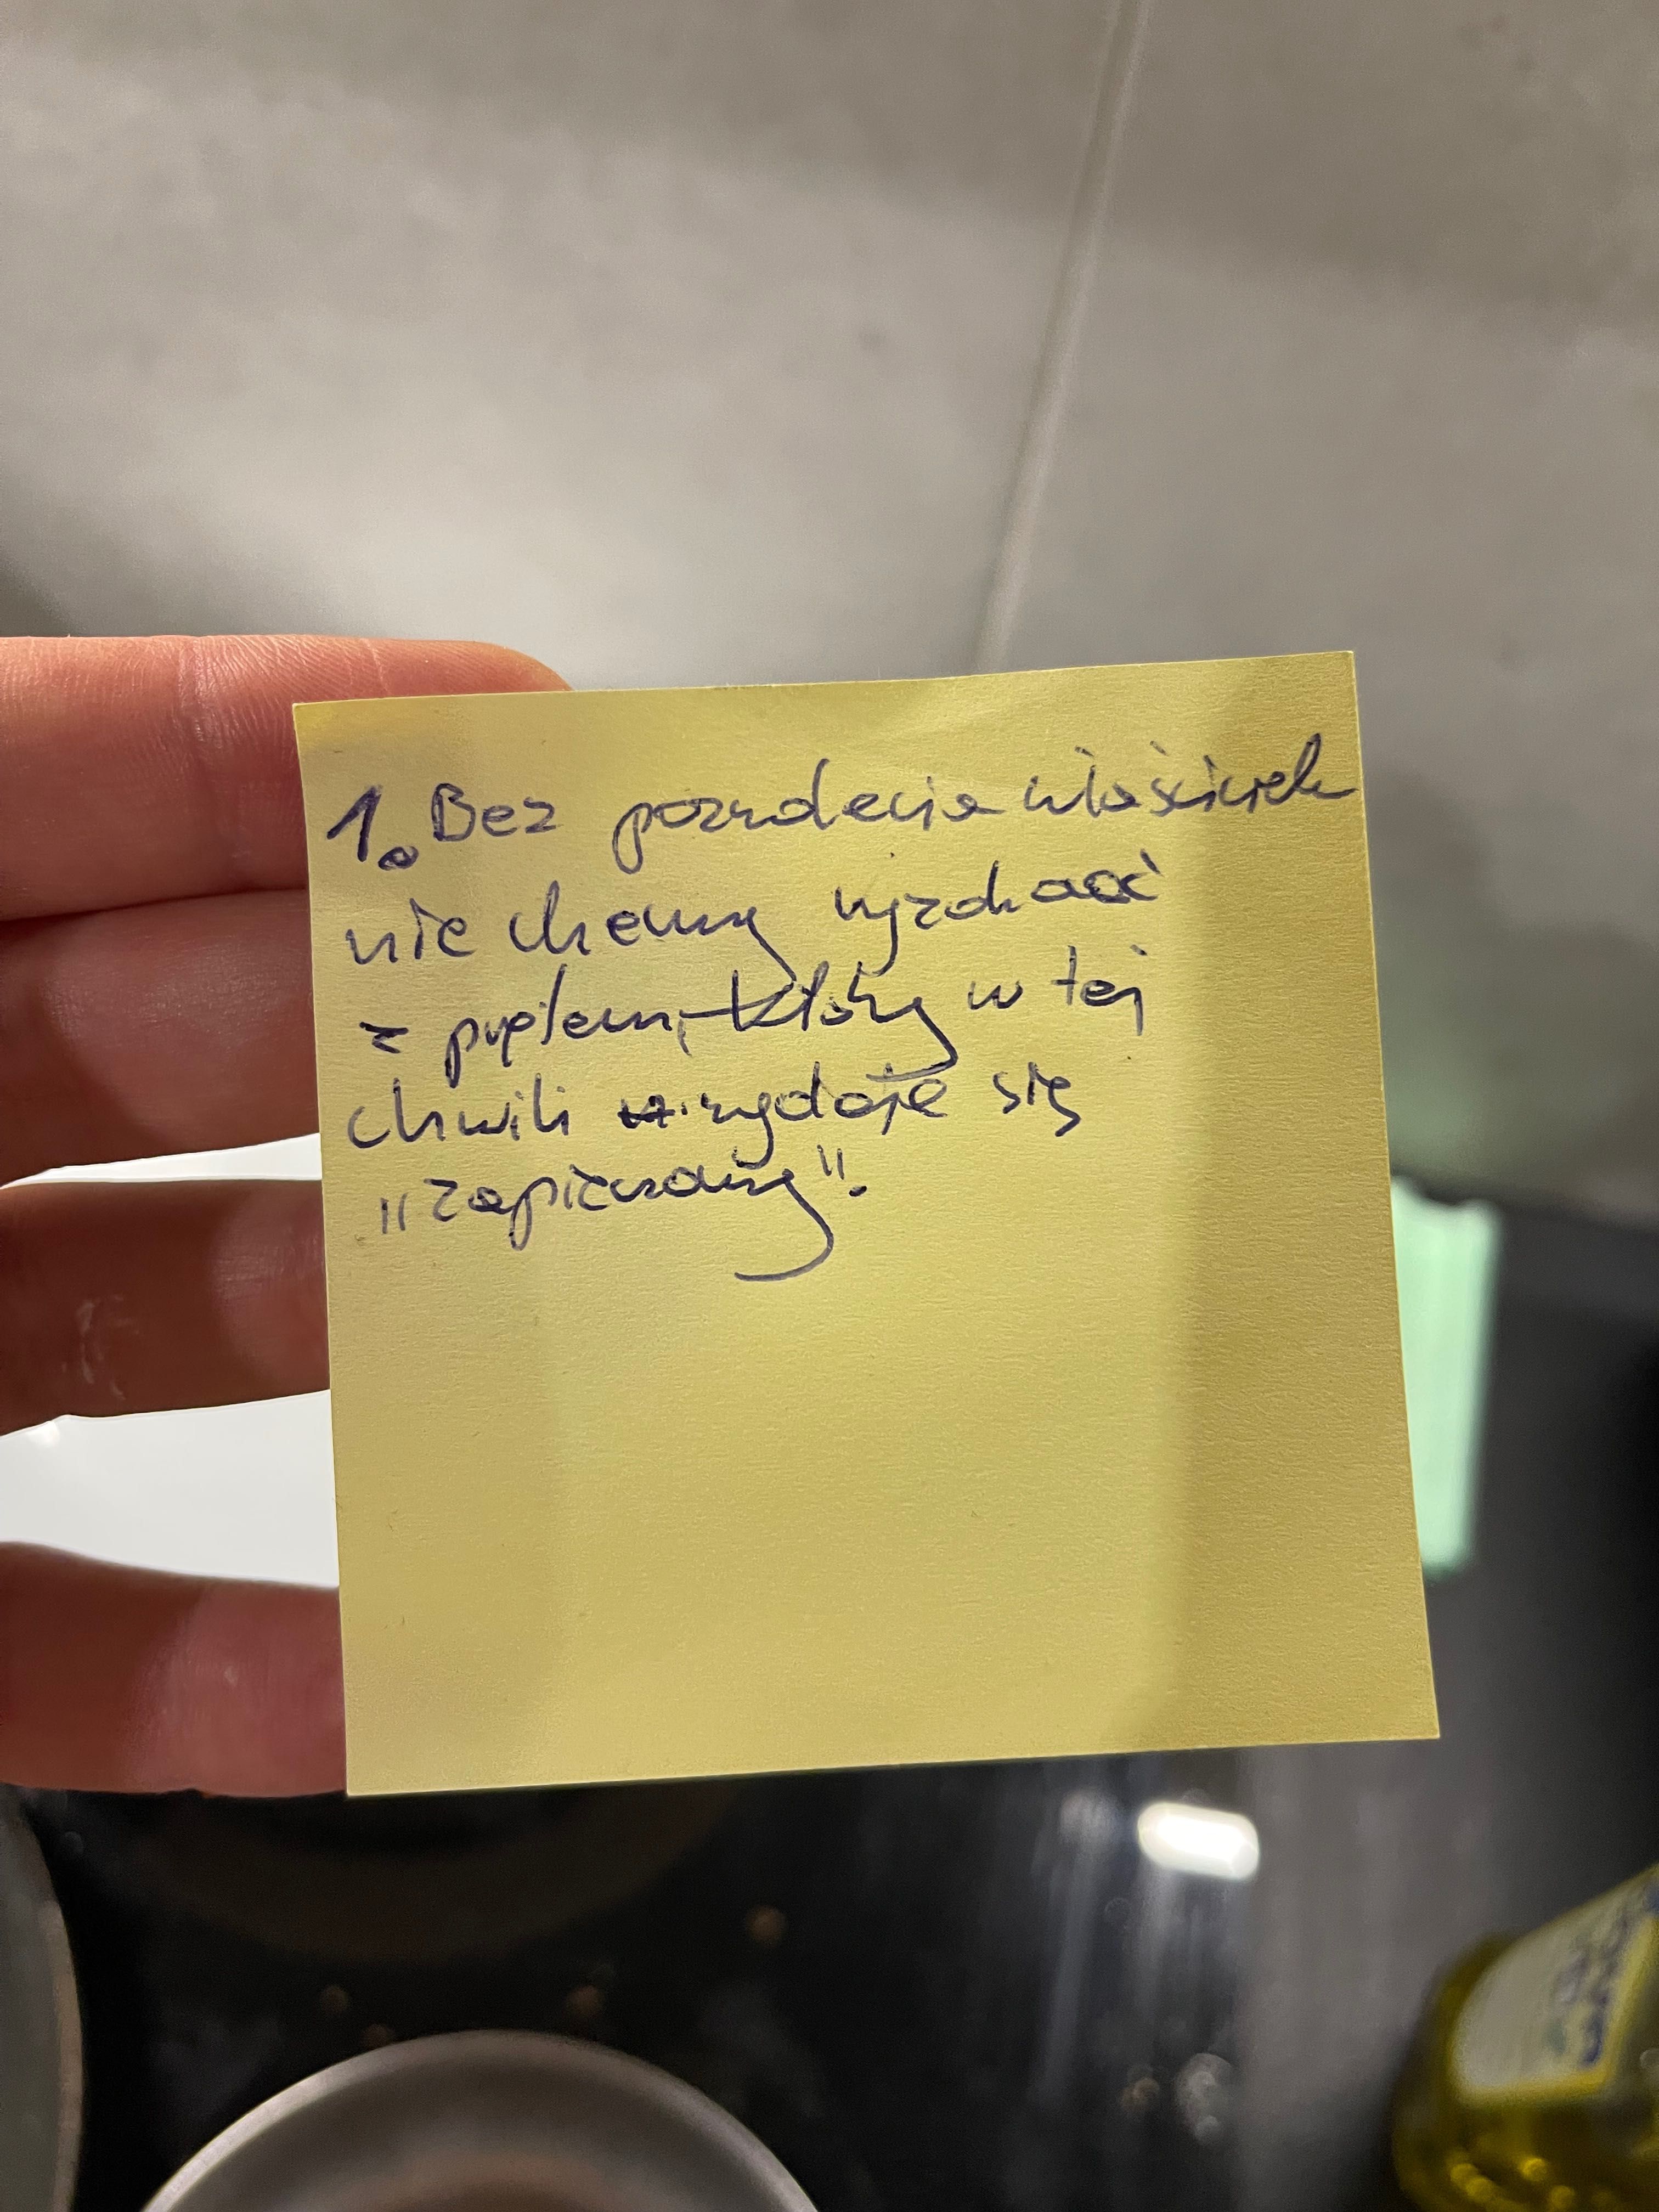 1. Bez pozwolenia właściciela
nie chcemy wyjechać
z pupilem, który w tej
chwili wydaje się
"zapierany".